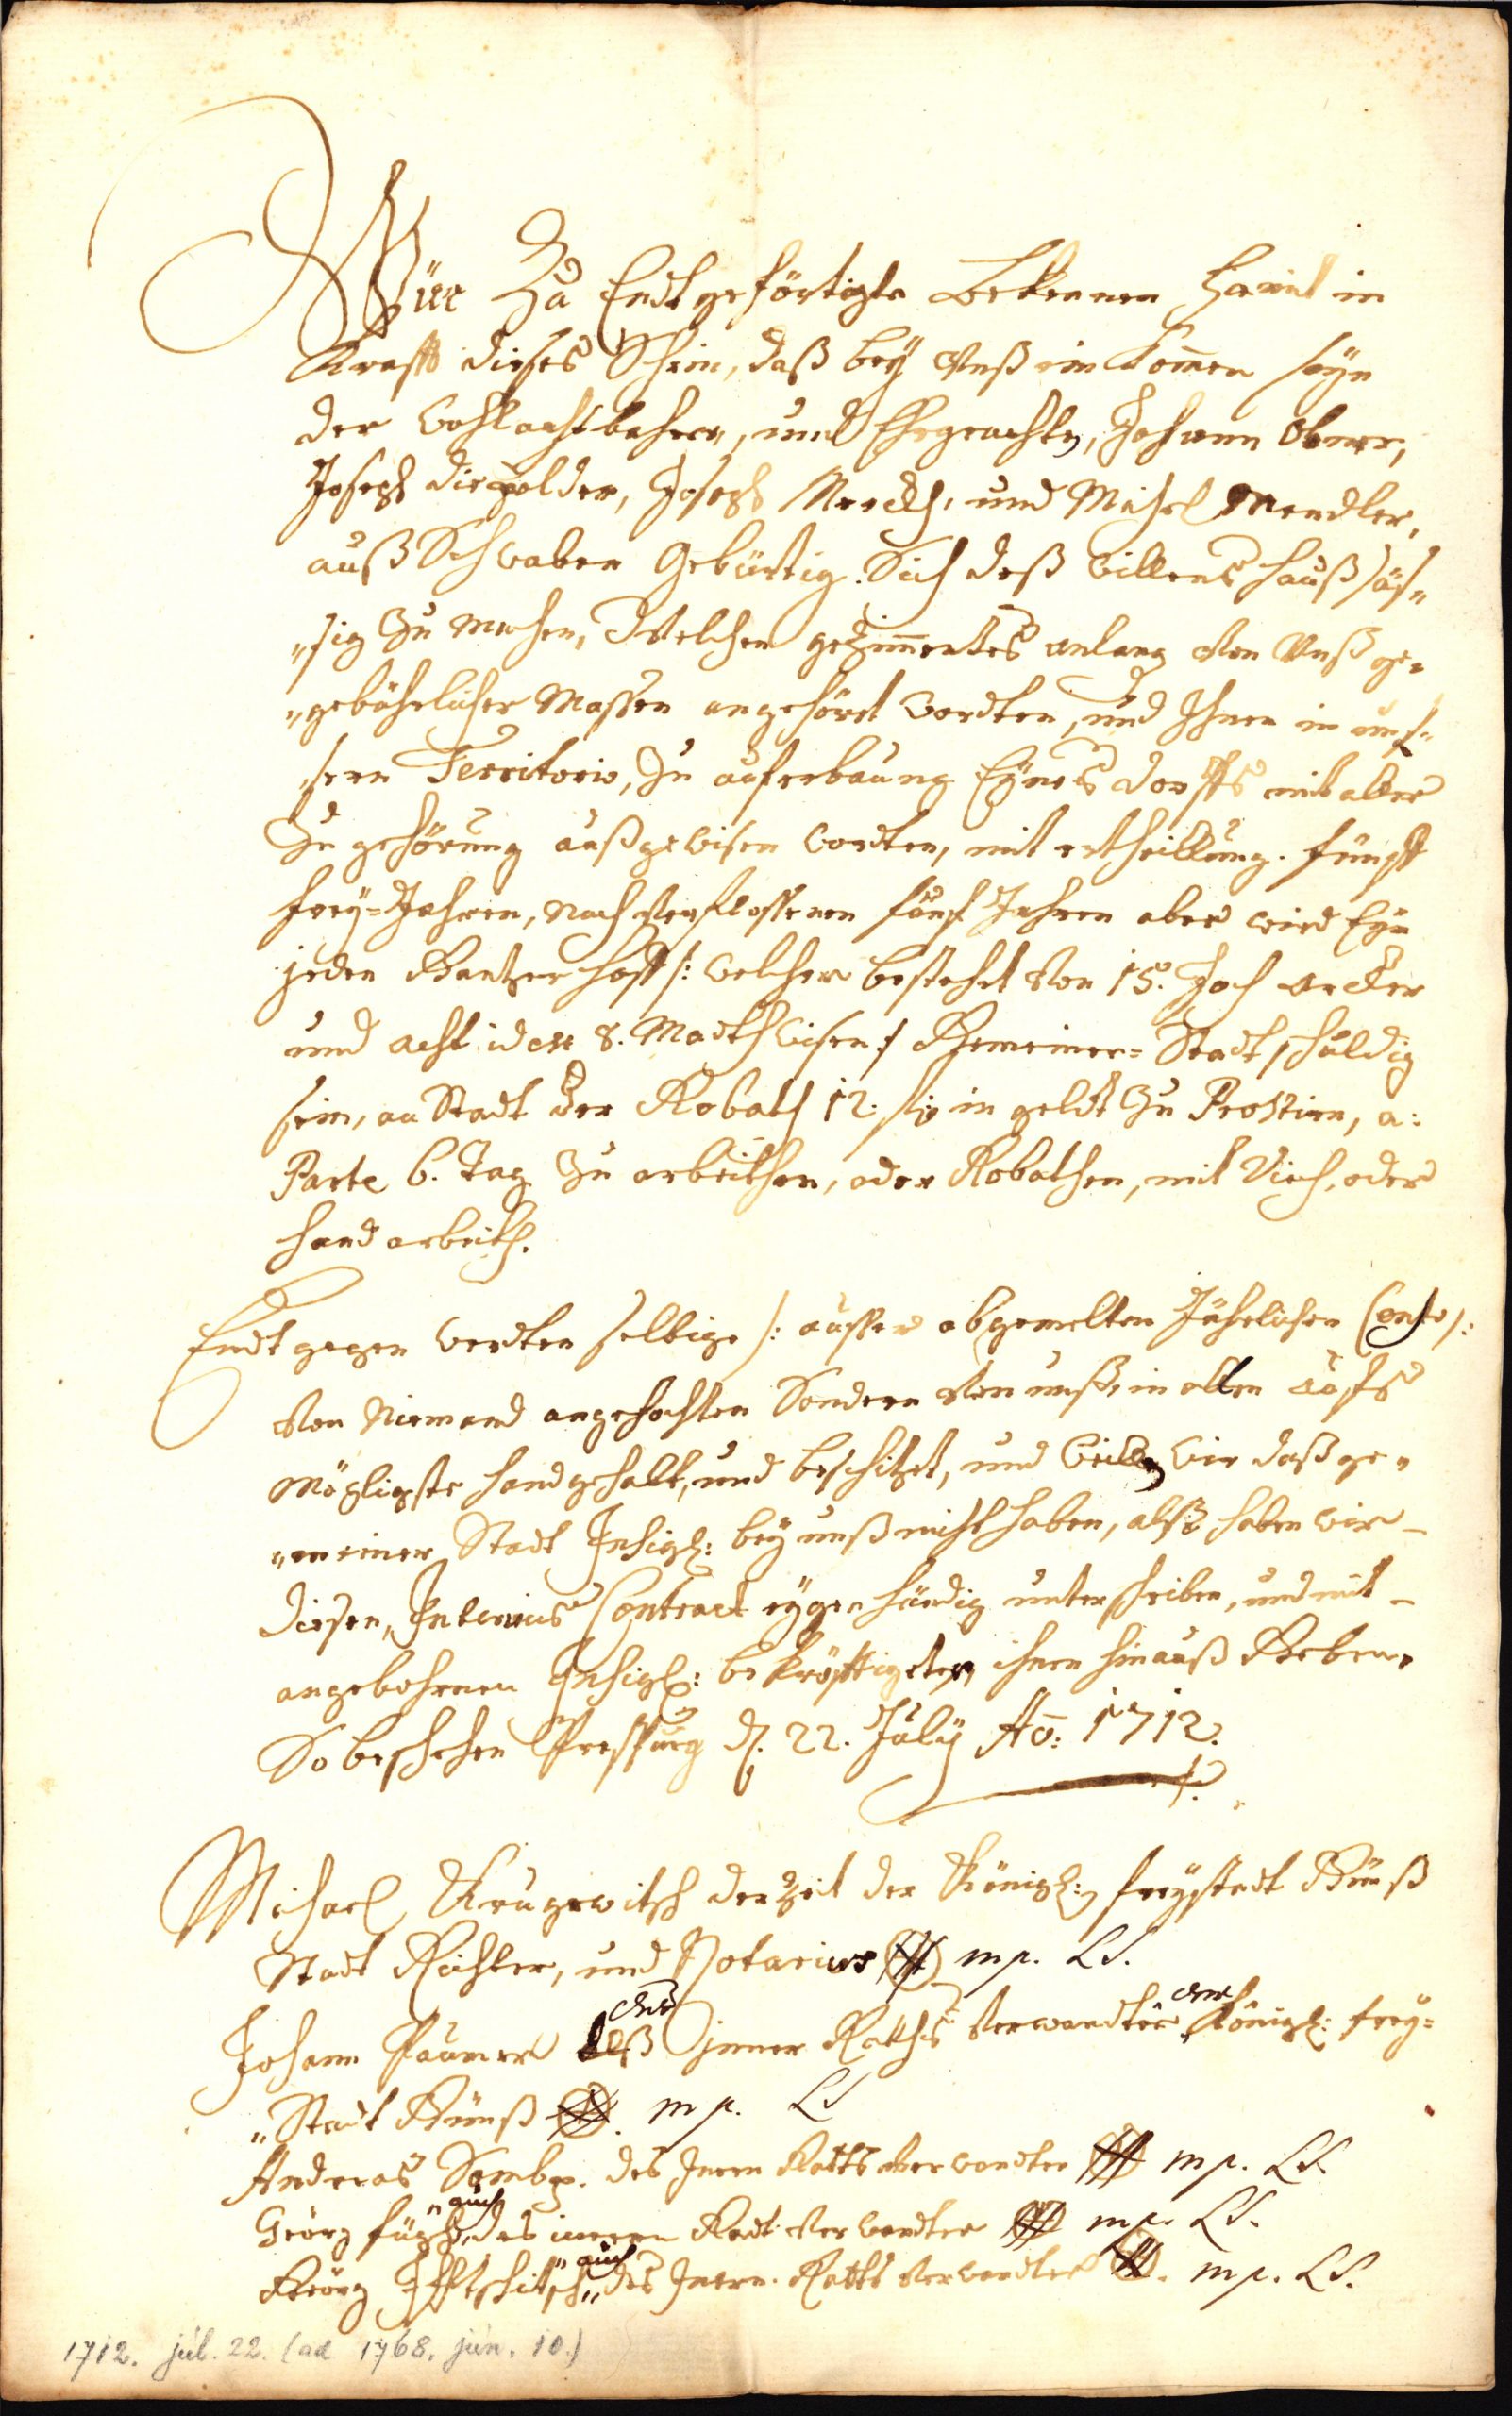 Wür Zu Endtgeförtigte Bekennen hiemit in
Krafft dieses Schein, daß bey Unß ein komen seyn
der Wohlachtbahren, und Ehrgeachte, Johann Obmer,
Joseph Diepolder, Joseph Merckh, und Michel Mendler,
auß Schwaben Gebürtig. Sich deß willens hauß säs„
„sig Zu Machen, Welchen gezimentes anlang Von Unß ge„
„gebührlicher Massen angehördt wordten, und Ihnen in unß„
sern Territorio, Zu auferbauung Eynes dorffs mit aller
Zu gehörung außgewisen wordten, mit ertheillung. fünff
frey=Jahren, Nach verflossenen fünf Jahren aber wird Eyn
jeden Gantzer hoff /: welcher bestehet Von 15. Joch Acker
und acht iden 8. Madth wisen :/ Gemeiner= Stadt schuldig
sein, an Stadt der Robath 12: fl: in geldt Zu Prostirn, a:
Parte 6. Tag Zu arbeithen, oder Robathen, mit Viech, oder
hand arbeith.
Endt gegen werdten selbige /: ausser abgemelten Jährlichen Cens :/
Von Niemand angefochten Sondern Von unß, in allen aufs
Mögligste handgehalt, und beschitzet, und weillen wir daß ge„
„meiner Stadt Insigl: bey unß nicht haben, alß haben wir
disen, Interims Contract eygen händig unter schriben, und mit
angebohrnen Insigl: bekröfftigter, ihnen hinauß Geben.
So beschehen Prespurg d. 22. July Aō: 1712.
Michael Krugowitsch der Zeit der Königl: freystadt Günß
Stadt Richter, und Notarius mp. LS.
Johann Paumer deß jnner Raths Verwandter der Königl: frey=
„Stadt Günß mp. LS
Andreas des Jnern Raths Verwandter mp. LS.
Geörg „auch des innern Radt Verwandter mp. LS.
Geörg „auch des Jnern. Raths Verwandter mp. LS.
1712. júl. 22. (ad 1768. jún. 10.)